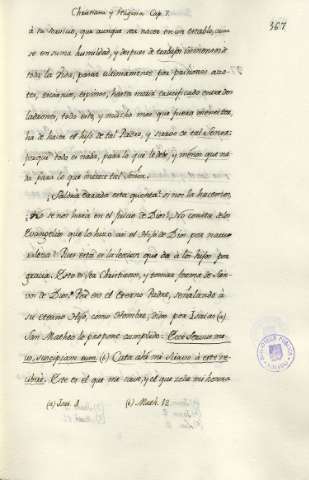 Christiana y Religiosa Cap. X.
367
á su servicio, que aunque sea nacer en un establo, como
se en suma humildad, y despues de trabajos
toda la vida, pasar ultimamente por pasiones, azo-
tes, escarnios, espinas, hasta morir crucificado entre dos
ladrones, todo esto, y mucho mas que fuera menester,
ha de hacer el hijo de tal Padre, y siervo de tal Señor:
porque todo es nada, para lo que le debe, y menos que na-
da para lo que merece tal Señor.
¿Saldria errada esta quenta? si nos la hacemos,
¿No se nos hará en el juicio de Dios? No consta de los
Evangelios que lo hizo así el Hijo de Dios por natu-
raleza? Pues esta es la leccion que da á los hijos por
gracia. Esto es ser Christiano, y tomar forma de Sier-
vo de Dios. Por eso el Eterno Padre, señalando á
su eterno Hijo, como Hombre, dixo por Isaias (a)
San Matheo lo propone cumplido. Ecce Servus me-
us, suscipiam eum (b) Catad ahi mi Siervo á este re-
cibiré. Este es el que me sirve, y el que seña mi honra
(a) Isai. 4. (b) Math. 12.